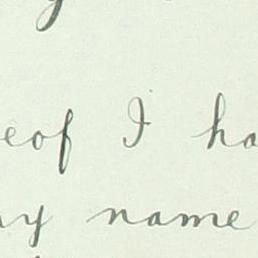 eof I ha
y name